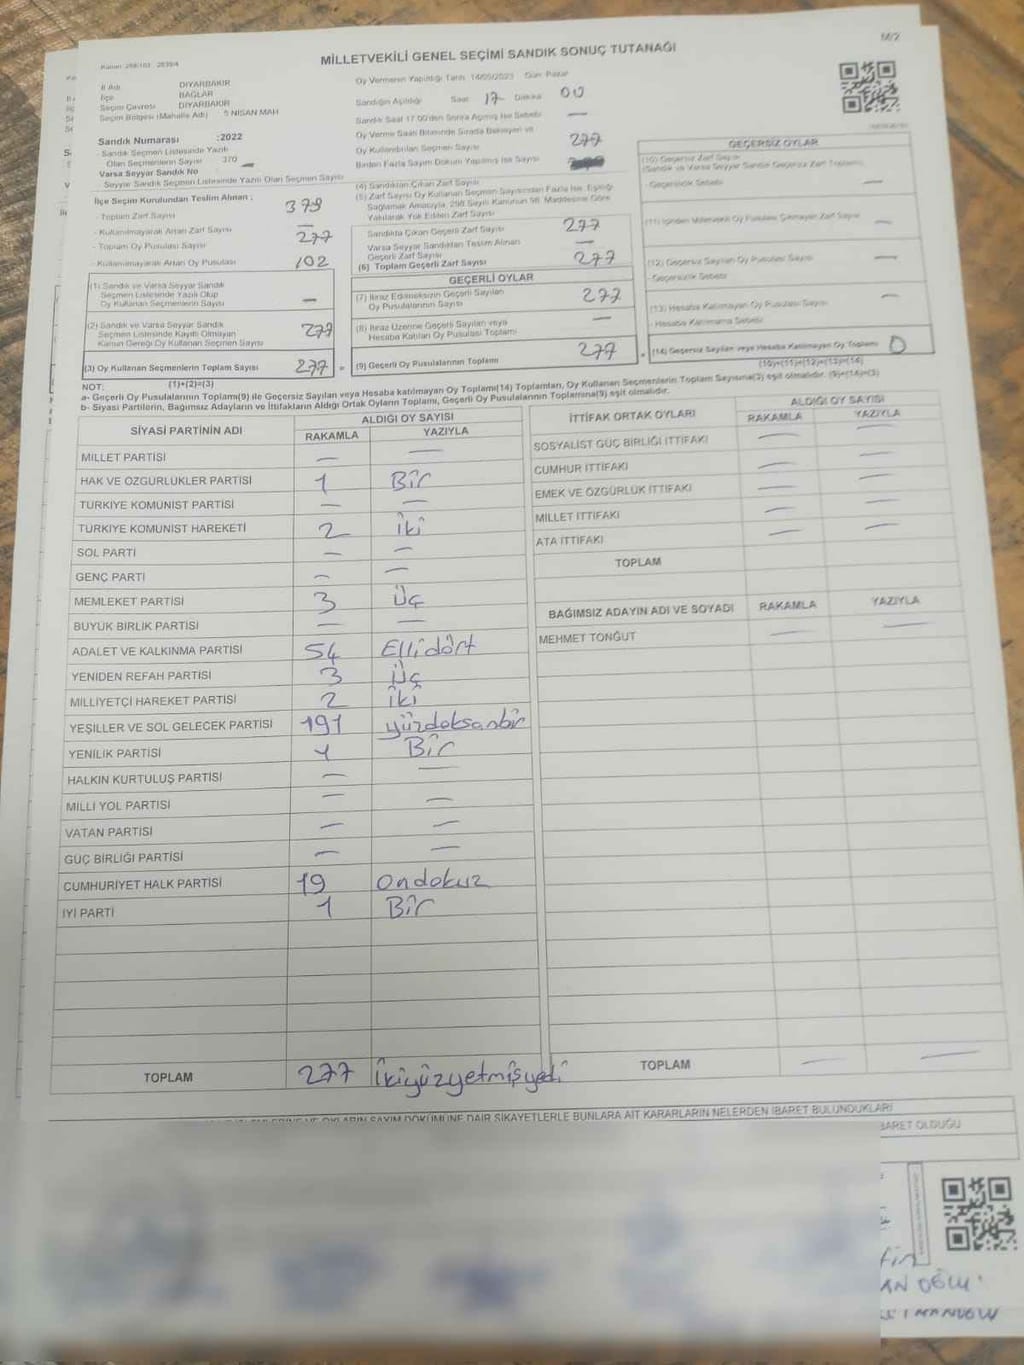 M/2
MİLLETVEKİLİ GENEL SEÇİMİ SANDIK SONUÇ TUTANAĞI
İl Adı DİYARBAKIR
İlçe BAĞLAR
Seçim Çevresi DİYARBAKIR
Seçim Bölgesi (Mahalle Adı) 5 NİSAN MAH
Oy Vermenin Yapıldığı Tarih 14/05/2023 Gün Pazar
Sandığın Açıldığı Saat 17 Dakika 00
Sandık Saat 17.00'den Sonra Açılmış İse Sebebi —
Oy Verme Saati Bitiminde Sırada Bekleyen ve
Oy Kullandırılan Seçmen Sayısı 277
Birden Fazla Sayım Döküm Yapılmış İse Sayısı
Sandık Numarası :2022
- Sandık Seçmen Listesinde Yazılı
Olan Seçmenlerin Sayısı 370
Varsa Seyyar Sandık No —
Seyyar Sandık Seçmen Listesinde Yazılı Olan Seçmen Sayısı
İlçe Seçim Kurulundan Teslim Alınan :
- Toplam Zarf Sayısı 379
- Kullanılmayarak Artan Zarf Sayısı —
- Toplam Oy Pusulası Sayısı 277
- Kullanılmayarak Artan Oy Pusulası 102
(1) Sandık ve Varsa Seyyar Sandık
Seçmen Listesinde Yazılı Olup
Oy Kullanan Seçmenlerin Sayısı —
(2) Sandık ve Varsa Seyyar Sandık
Seçmen Listesinde Kayıtlı Olmayan
Kanun Gereği Oy Kullanan Seçmen Sayısı 277
(3) Oy Kullanan Seçmenlerin Toplam Sayısı 277
(1)+(2)=(3)
(4) Sandıktan Çıkan Zarf Sayısı
(5) Zarf Sayısı Oy Kullanan Seçmen Sayısından Fazla İse, Eşitliği
Sağlamak Amacıyla, 298 Sayılı Kanunun 98. Maddesine Göre
Yakılarak Yok Edilen Zarf Sayısı
Sandıkta Çıkan Geçerli Zarf Sayısı 277
Varsa Seyyar Sandıktan Teslim Alınan
Geçerli Zarf Sayısı —
(6) Toplam Geçerli Zarf Sayısı 277
GEÇERLİ OYLAR
(7) İtiraz Edilmeksizin Geçerli Sayılan
Oy Pusulalarının Sayısı 277
(8) İtiraz Üzerine Geçerli Sayılan veya
Hesaba Katılan Oy Pusulası Toplamı —
(9) Geçerli Oy Pusulalarının Toplamı 277
GEÇERSİZ OYLAR
(10) Geçersiz Zarf Sayısı
(Sandık ve Varsa Seyyar Sandık Geçersiz Zarf Toplamı)
- Geçersizlik Sebebi —
(11) İçinden Milletvekili Oy Pusulası Çıkmayan Zarf Sayısı —
(12) Geçersiz Sayılan Oy Pusulası Sayısı —
- Geçersizlik Sebebi
(13) Hesaba Katılmayan Oy Pusulası Sayısı —
- Hesaba Katılmama Sebebi
(14) Geçersiz Sayılan veya Hesaba Katılmayan Oy Toplamı 0
(10)+(11)+(12)+(13)=(14)
NOT:
a- Geçerli Oy Pusulalarının Toplamı(9) ile Geçersiz Sayılan veya Hesaba katılmayan Oy Toplamı(14) Toplamları, Oy Kullanan Seçmenlerin Toplam Sayısına(3) eşit olmalıdır. (9)+(14)=(3)
b- Siyasi Partilerin, Bağımsız Adayların ve İttifakların Aldığı Ortak Oyların Toplamı, Geçerli Oy Pusulalarının Toplamına(9) eşit olmalıdır.
SİYASİ PARTİNİN ADI ALDIĞI OY SAYISI
RAKAMLA YAZIYLA
MİLLET PARTİSİ — —
HAK VE ÖZGÜRLÜKLER PARTİSİ 1 Bir
TÜRKİYE KOMÜNİST PARTİSİ — —
TÜRKİYE KOMÜNİST HAREKETİ 2 İki
SOL PARTİ — —
GENÇ PARTİ — —
MEMLEKET PARTİSİ 3 Üç
BÜYÜK BİRLİK PARTİSİ — —
ADALET VE KALKINMA PARTİSİ 54 Ellidört
YENİDEN REFAH PARTİSİ 3 Üç
MİLLİYETÇİ HAREKET PARTİSİ 2 İki
YEŞİLLER VE SOL GELECEK PARTİSİ 191 yüzdoksanbir
YENİLİK PARTİSİ 1 Bir
HALKIN KURTULUŞ PARTİSİ — —
MİLLİ YOL PARTİSİ — —
VATAN PARTİSİ — —
GÜÇ BİRLİĞİ PARTİSİ — —
CUMHURİYET HALK PARTİSİ 19 Ondokuz
İYİ PARTİ 1 Bir
TOPLAM 277 İkiyüzyetmişyedi
İTTİFAK ORTAK OYLARI ALDIĞI OY SAYISI
RAKAMLA YAZIYLA
SOSYALİST GÜÇ BİRLİĞİ İTTİFAKI — —
CUMHUR İTTİFAKI — —
EMEK VE ÖZGÜRLÜK İTTİFAKI — —
MİLLET İTTİFAKI — —
ATA İTTİFAKI — —
TOPLAM
BAĞIMSIZ ADAYIN ADI VE SOYADI RAKAMLA YAZIYLA
MEHMET TONĞUT — —
TOPLAM — —
OYLARIN SAYIM DÖKÜMÜNE DAİR ŞİKAYETLERLE BUNLARA AİT KARARLARIN NELERDEN İBARET BULUNDUKLARI
İBARET OLDUĞU